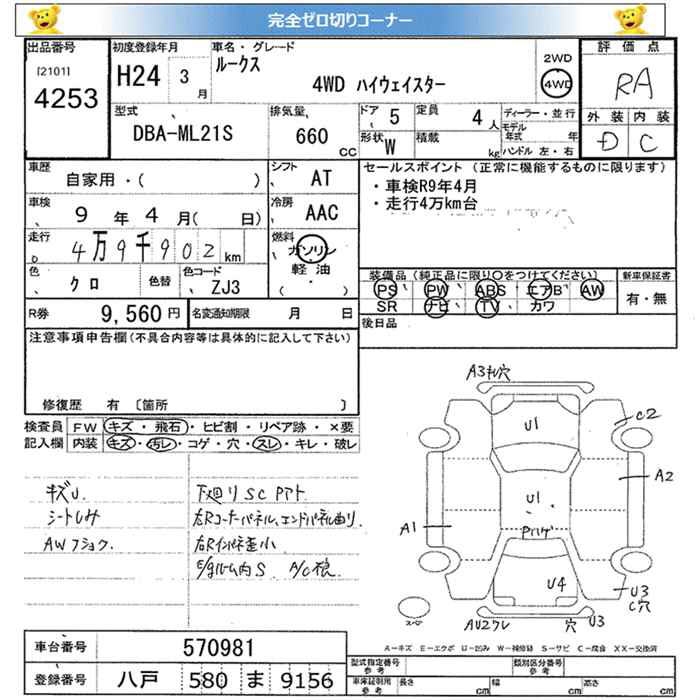 完全ゼロ切りコーナー
出品番号 初度登録年月 車名・グレード 評価点
[2101] H24 3月 ルークス 2WD
4253 4WD ハイウェイスター 4WD RA
型式 排気量 ドア 5 定員 4人 ディーラー・並行 外装 内装
DBA-ML21S 660 CC 形状 W 積載 kg モデル年式 年 D C
ハンドル 左・右
車歴 自家用・( ) シフト AT セールスポイント (正常に機能するものに限ります)
・車検R9年4月
車検 9年4月( 日) 冷房 AAC ・走行4万km台
走行 4万9千902km 燃料 ガソリン
軽油
( ・ )
色 クロ 色替 色コード ZJ3 装備品 (純正品に限り○をつけてください) 新車保証書
PS PW ABS エアB AW 有・無
R券 9,560円 名変通知期限 月 日 SR ナビ TV カワ
注意事項申告欄(不具合内容等は具体的に記入して下さい) 後日品
修復歴 有 〔箇所 〕
検査員 FW キズ・飛石・ヒビ割・リペア跡・×要
記入欄 内装 キズ・汚レ・コゲ・穴・スレ・キレ・破レ
キズU 下廻りSC Pアト
シートしみ 左Rコーナーパネル、エンドパネル曲り
AWフショク 左Rインパネ歪小
ルーム内S A/C狼
A3キレ穴
U1
C2
A2
U1
A1
Pハゲ
U4
U3
C穴
スペア
AU2ワレ 穴 U3
A-キズ E-エクボ U-凹み W-補修跡 S-サビ C-腐食 XX-交換済
車台番号 570981
登録番号 八戸 580 ま 9156
型式指定番号 参考 類別区分番号 参考
車庫証明用 参考 長さ cm 幅 cm 高さ cm